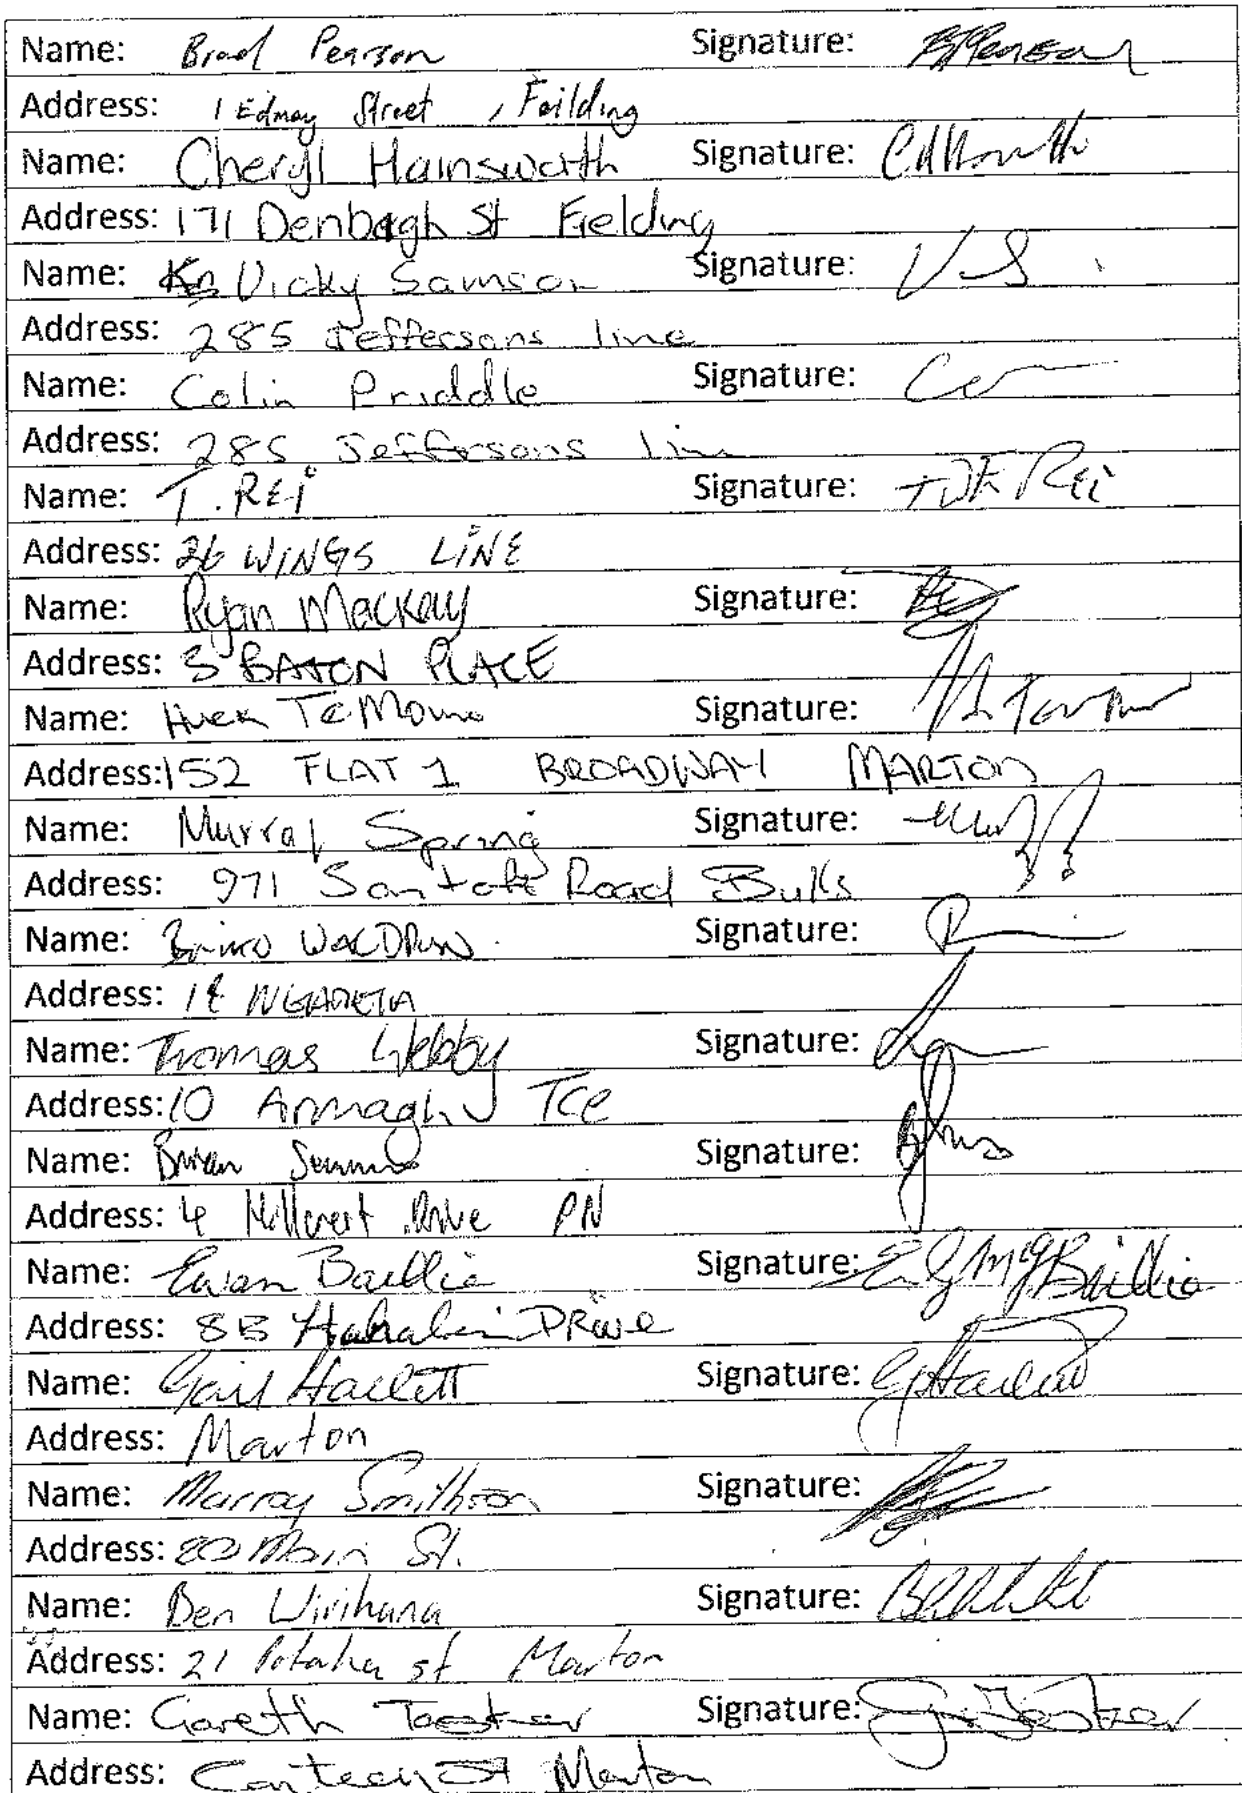 Name: Brad Pearson Signature:
Address: 1 Edmay Street, Feilding
Name: Cheryl Hainsworth Signature:
Address: 171 Denbagh St Fielding
Name: Vicky Samson Signature: VS
Address: 285 Jeffersons line
Name: Colin Priddle Signature:
Address: 285 Jeffersons line
Name: T. REi Signature: Rei
Address: 26 WiNGS LiNE
Name: Ryan Mackay Signature:
Address: 3 BATON PLACE
Name: Signature:
Address: 152 FLAT 1 BROADWAY MARTON
Name: Murray Spring Signature:
Address: 971 Santoft Road Bulls
Name: Signature:
Address:
Name: Thomas Webby Signature:
Address: 10 Armagh Tce
Name: Brian Signature:
Address: 4 Hillcrest Drive PN
Name: Ewan Baillie Signature: Baillie
Address: 8B DRive
Name: Gail Hallett Signature:
Address: Marton
Name: Murray Smithson Signature:
Address: Main St.
Name: Ben Wirihana Signature:
Address: 21 Potaka st Marton
Name: Gareth Signature:
Address: St Marton